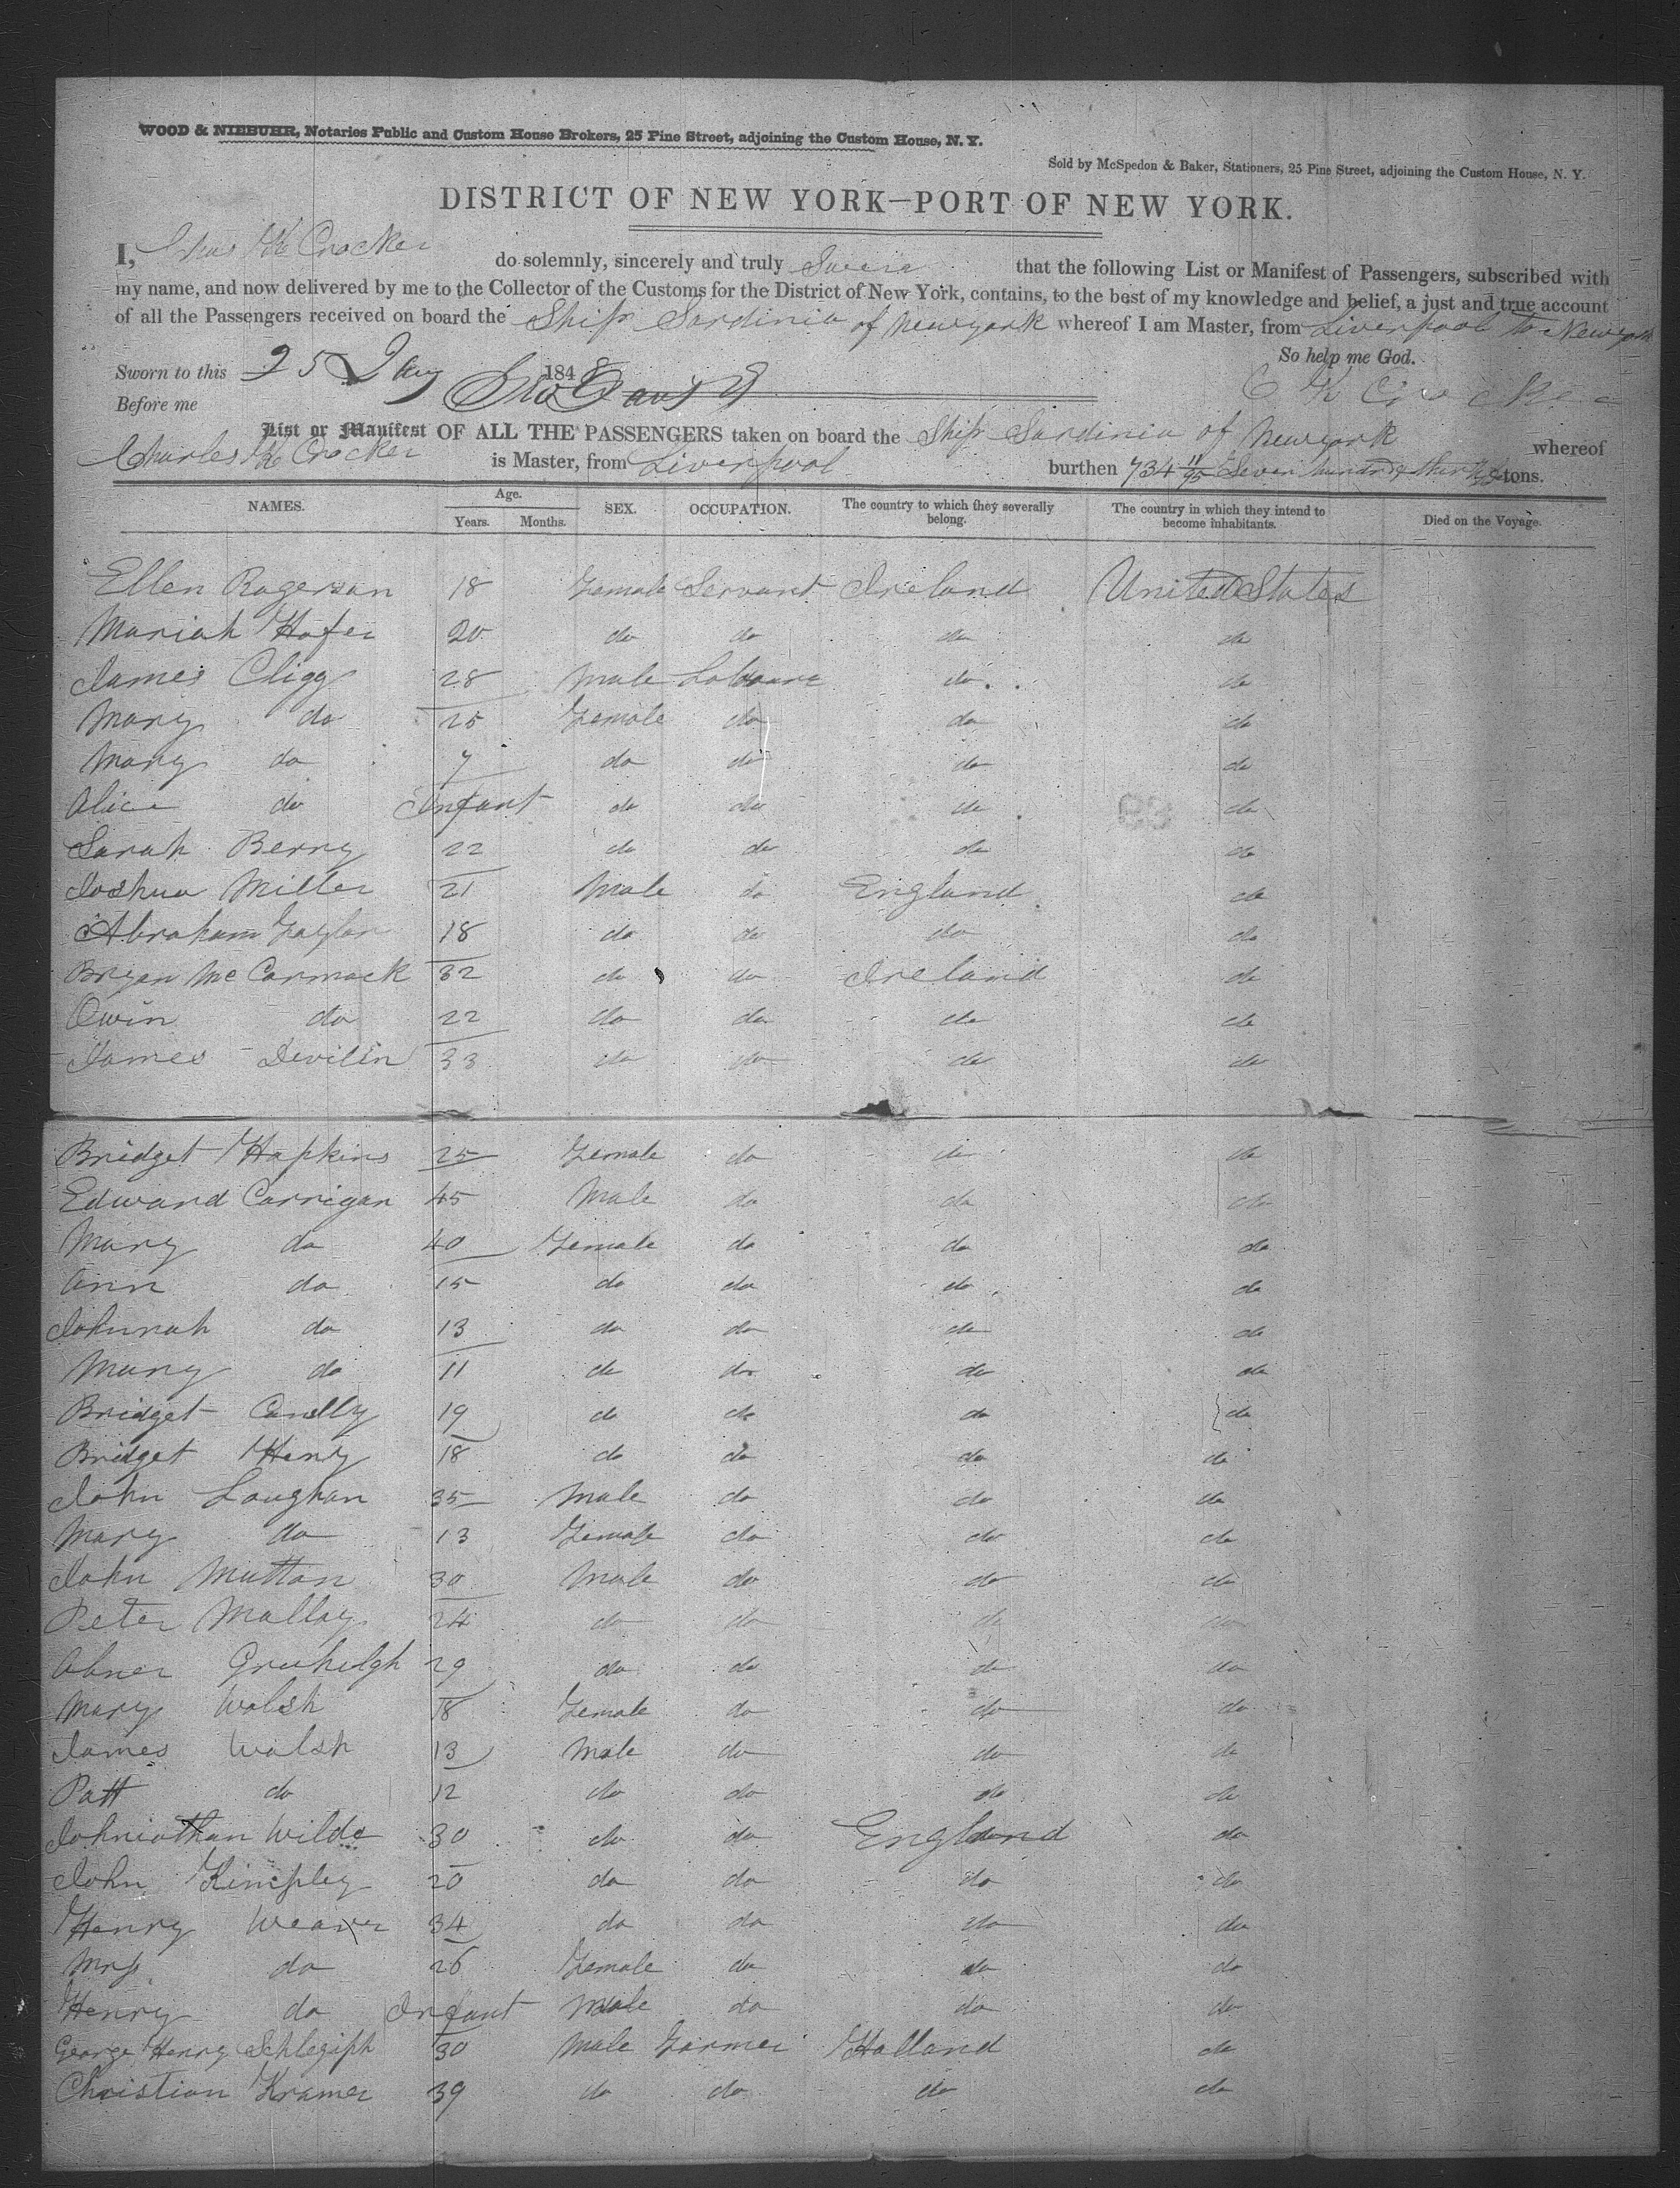 WOOD & NIEBUHR, Notaries Public and Custom House Brokers, 25 Pine Street, adjoining the Custom House, N. Y.
Sold by McSpedon & Baker, Stationers, 25 Pine Street, adjoining the Custom House, N. Y.
DISTRICT OF NEW YORK—PORT OF NEW YORK.
I, Chas H Crocker do solemnly, sincerely and truly Swear that the following List or Manifest of Passengers, subscribed with
my name, and now delivered by me to the Collector of the Customs for the District of New York, contains, to the best of my knowledge and belief, a just and true account
of all the Passengers received on board the Ship Sardinia of Newyork whereof I am Master, from Liverpool to Newyork
So help me God.
Sworn to this 25 184
Before me
List or Manifest OF ALL THE PASSENGERS taken on board the Ship Sardinia of Newyork whereof
Charles H Crocker is Master, from Liverpool burthen 734 11/95 Seven hundred & thirty tons.
NAMES. Age. Years. Months. SEX. OCCUPATION. The country to which they severally belong. The country in which they intend to become inhabitants. Died on the Voyage.
Ellen Rogerson 18 Female Servant Ireland United States
Mariah Hafer 20 do do do do
James Cligg 28 Male Laboure do do
Mary do 25 Female do do do
Mary do 7 do do do do
Alice do Infant do do do do
Sarah Berry 22 do do do do
Joshua Miller 21 Male do England do
Abraham 18 do do do do
Bryan McCormack 32 do do Ireland do
Owin do 22 do do do do
James Devilin 33 do do do do
Bridget Hapkins 25 Female do do do
Edward Corrigan 45 Male do do do
Mary do 40 Female do do do
Ann do 15 do do do do
Johnnah do 13 do do do do
Mary do 11 do do do do
Bridget 19 do do do do
Bridget Henry 18 do do do do
John Loughan 35 Male do do do
Mary do 13 Female do do do
John Mutton 30 Male do do do
Peter Mallay 24 do do do do
Abner 29 do do do do
Mary Walsh 18 Female do do do
James Walsh 13 Male do do do
Patt do 12 do do do do
Johniathan Wilde 30 do do England do
John Kimpley 20 do do do do
Henry Weaver 34 do do do do
Mrs do 26 Female do do do
Henry do Infant Male do do do
George Henry 30 Male Farmer Holland do
Christian Kramer 39 do do do do